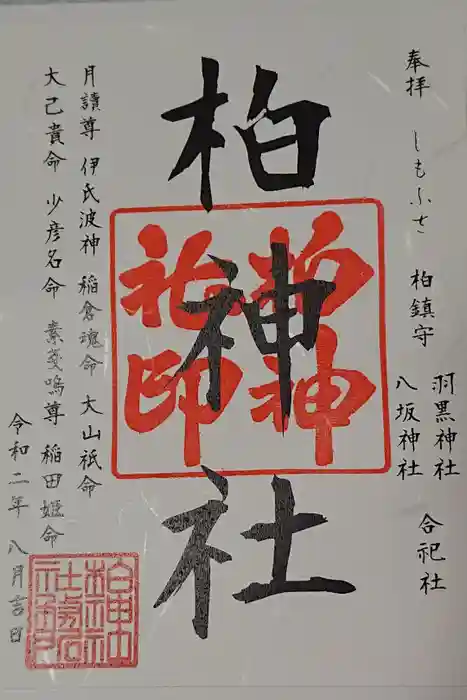 奉拝 しもふさ 柏鎮守 羽黒神社 合祀社
八坂神社
柏神社
柏神
社印
月讀尊 伊氐波神 稲倉魂命 大山祇命
大己貴命 少彦名命 素戔嗚尊 稲田姫命
令和二年 八月吉日